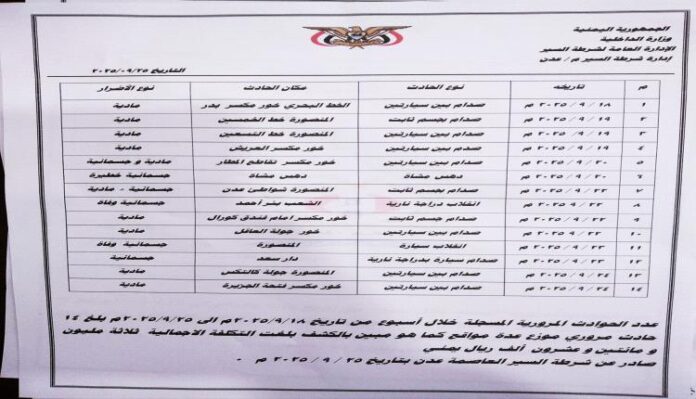 الجمهورية اليمنية
وزارة الداخلية
الإدارة العامة لشرطة السير
إدارة شرطة السير م/ عدن
التاريخ ٢٠٢٥/٠٩/٢٥
م تاريخه نوع الحادث مكان الحادث نوع الأضرار
١ ١٨ / ٩ / ٢٠٢٥ م صدام بين سيارتين الخط البحري خور مكسر بدر مادية
٢ ١٩ / ٩ / ٢٠٢٥ م صدام بجسم ثابت المنصورة خط الخمسين مادية
٣ ١٩ / ٩ / ٢٠٢٥ م صدام بين سيارتين المنصورة خط التسعين مادية
٤ ١٩ / ٩ / ٢٠٢٥ م صدام بين سيارتين خور مكسر العريش مادية
٥ ٢٠ / ٩ / ٢٠٢٥ م صدام بين سيارتين خور مكسر تقاطع المطار مادية و جسمانية
٦ ٢٠ / ٩ / ٢٠٢٥ م دهس مشاة دهس مشاة جسمانية خطيرة
٧ ٢٢ / ٩ / ٢٠٢٥ م صدام بجسم ثابت المنصورة شواطئ عدن جسمانية - مادية
٨ ٢٣ / ٩ / ٢٠٢٥ م انقلاب دراجة نارية الشعب بئر أحمد جسمانية وفاة
٩ ٢٣ / ٩ / ٢٠٢٥ م صدام جسم ثابت خور مكسر امام فندق كورال مادية
١٠ ٢٣ / ٩ / ٢٠٢٥ م صدام بين سيارتين خور جولة العاقل مادية
١١ ٢٣ / ٩ / ٢٠٢٥ م انقلاب سيارة المنصورة جسمانية وفاة
١٢ ٢٣ / ٩ / ٢٠٢٥ م صدام سيارة بدراجة نارية دار سعد جسمانية
١٣ ٢٤ / ٩ / ٢٠٢٥ م صدام بين سيارتين المنصورة جولة كالتكس مادية
١٤ ٢٤ / ٩ / ٢٠٢٥ م صدام بين سيارتين خور مكسر فتحة الجزيرة مادية
عدد الحوادث المرورية المسجلة خلال أسبوع من تاريخ ٢٠٢٥/٩/١٨م الى ٢٠٢٥/٩/٢٥م بلغ ١٤
حادث مروري موزع عدة مواقع كما هو مبين بالكشف بلغت التكلفة الاجمالية ثلاثة مليون
و مائتين و عشرون ألف ريال يمني
صادر عن شرطة السير العاصمة عدن بتاريخ ٢٥ / ٩ / ٢٠٢٥ م -